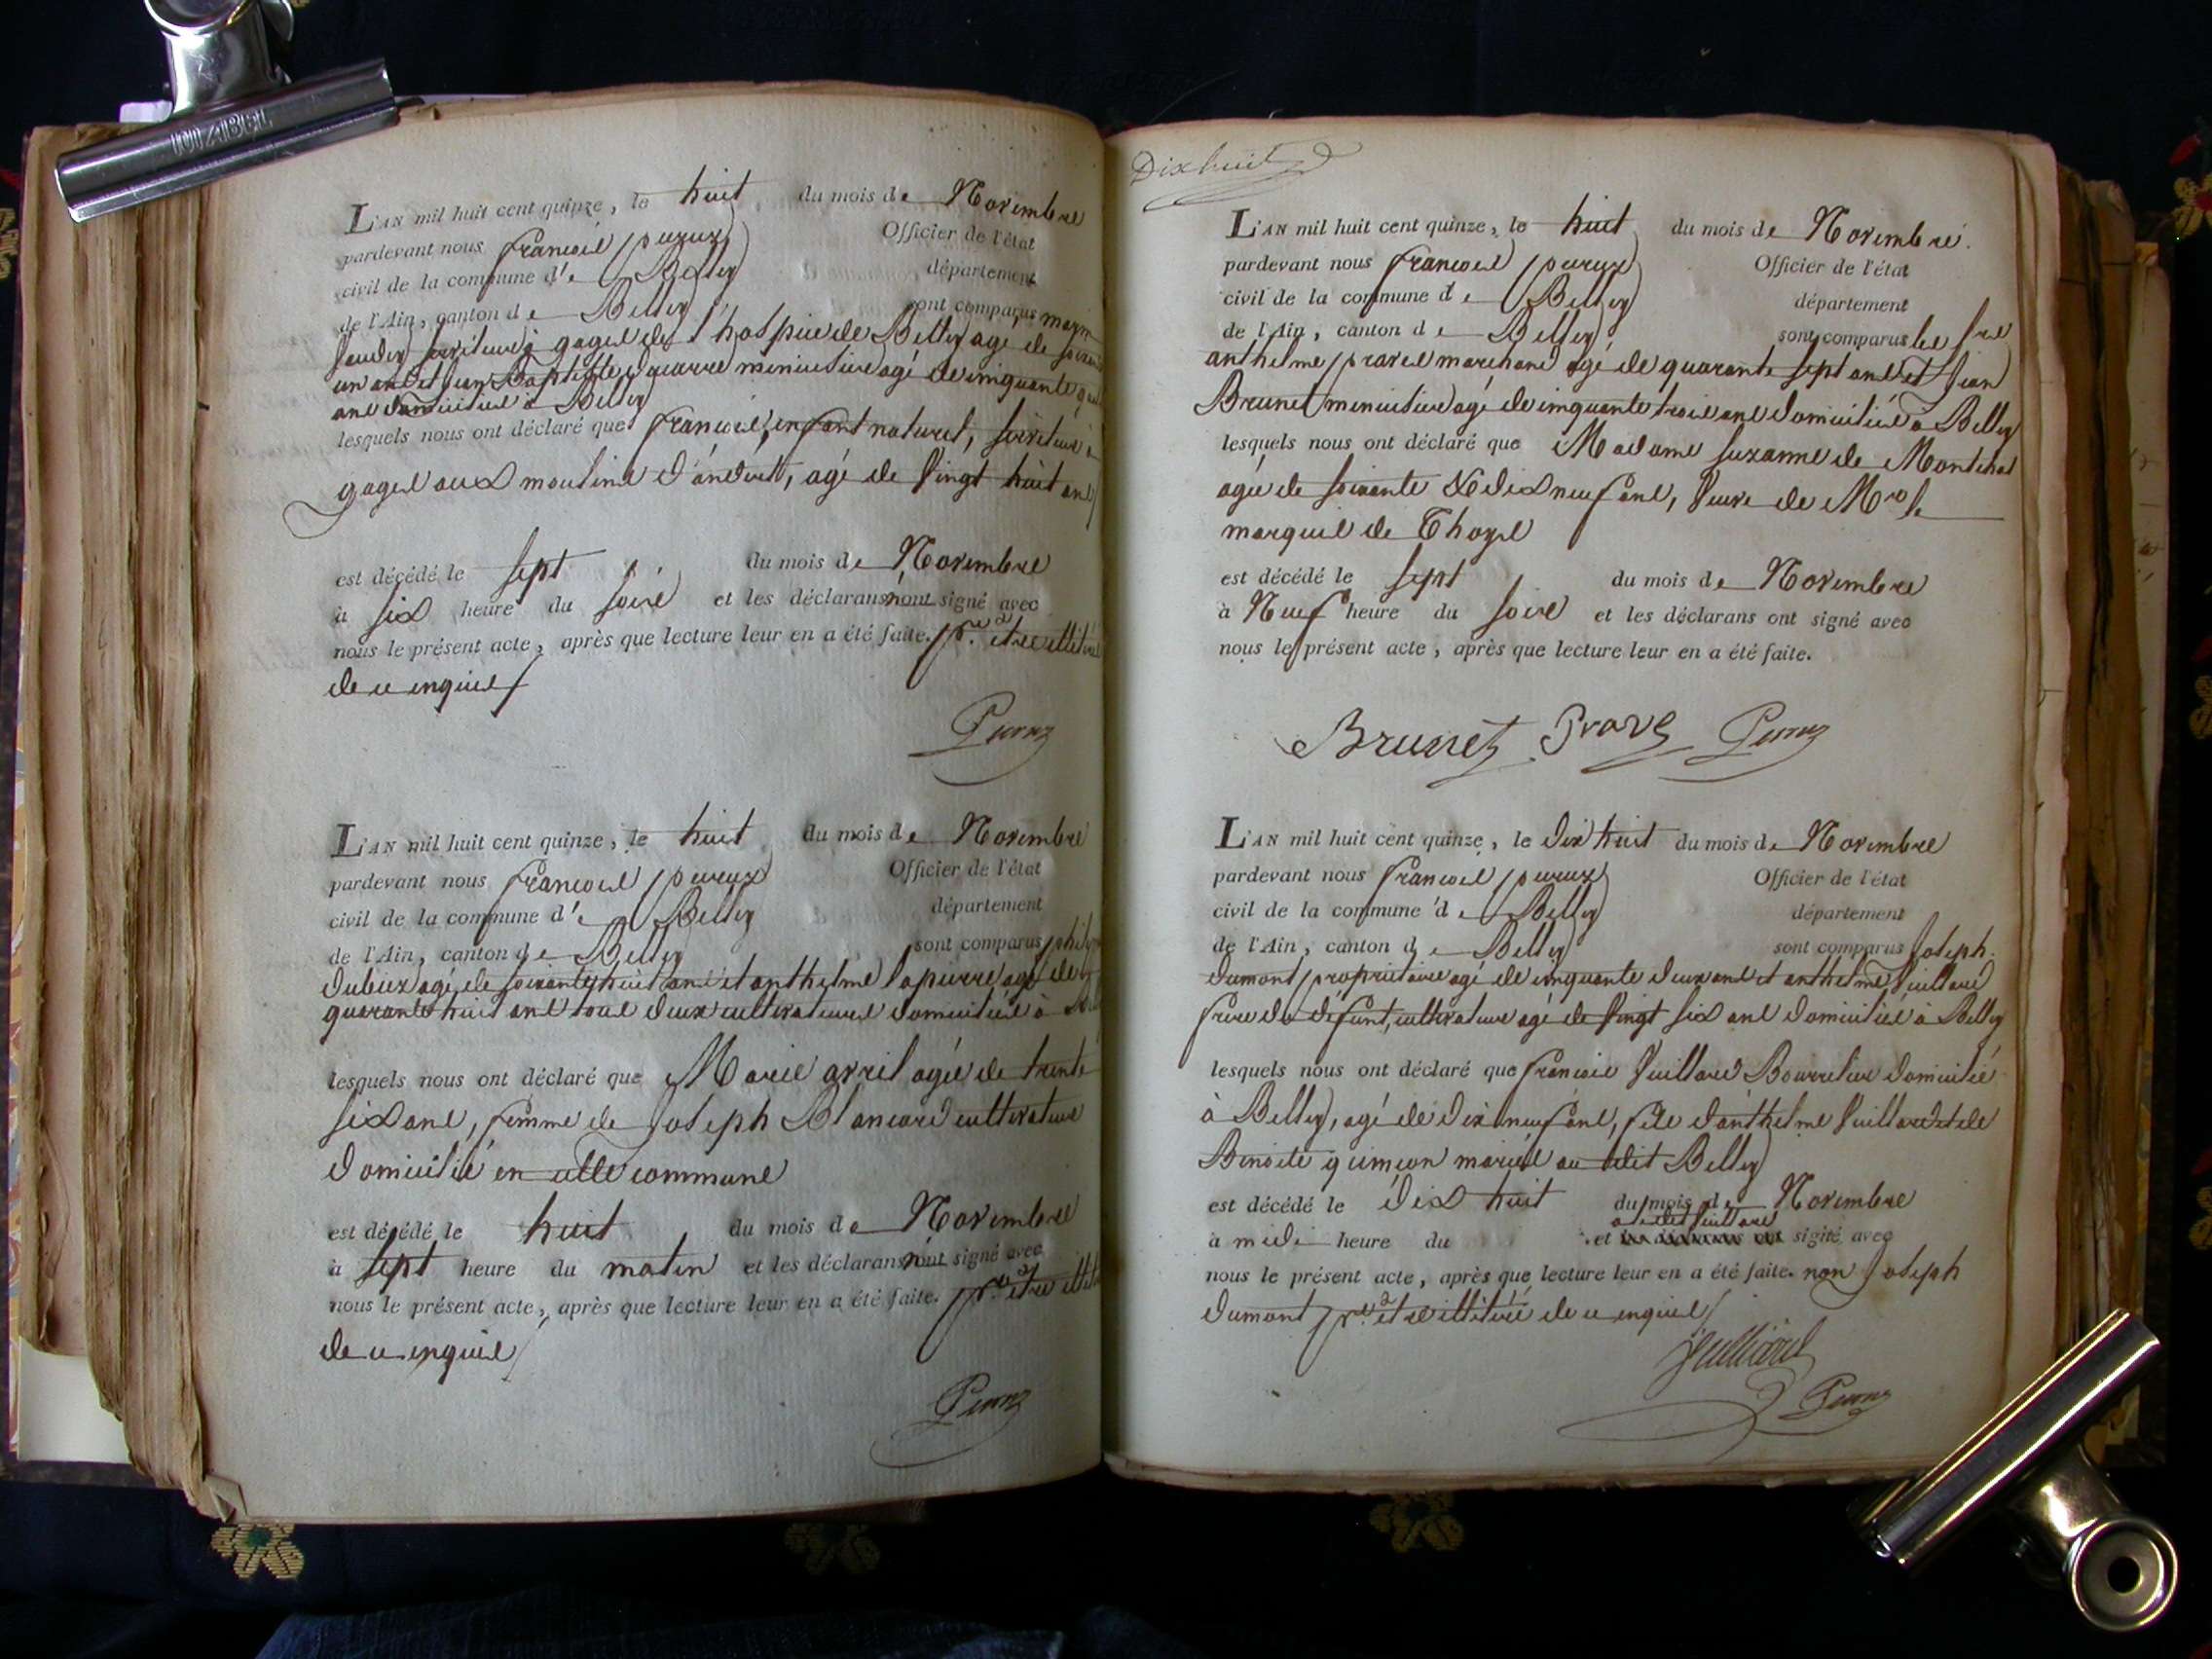 L'AN mil huit cent quinze, le huit du mois de Novembre
pardevant nous francois peruux Officier de l'état
civil de la commune d'e Belley département
de l'Ain, canton de Belley sont comparus
serviteur à gages de l'hospice de Belley agé de
un ans et jean Baptiste menuisier agé de cinquante
ans domiciliés à Belley
lesquels nous ont déclaré que francois, enfant naturel, serviteur à
gages aux moulins d'andert, agé de vingt huit ans
est décédé le sept du mois de Novembre
à six heure du soir et les déclarans n'ont signé avec
nous le présent acte, après que lecture leur en a été faite. pr. être illitérés
de ce enquis
L'AN mil huit cent quinze, le huit du mois de Novembre
pardevant nous francois peruux Officier de l'état
civil de la commune d'e Belley département
de l'Ain, canton de Belley sont comparus
agé de soixante huit ans et anthelme lapierre agé de
quarante huit ans tous deux cultivateurs domiciliés à
lesquels nous ont déclaré que Marie avril agée de trente
six ans, femme de Joseph Blancard cultivateur
domicilié en cette commune
est décédé le huit du mois de Novembre
à sept heure du matin et les déclarans n'ont signé avec
nous le présent acte, après que lecture leur en a été faite. pr. être
de ce enquis
Dix huit
L'AN mil huit cent quinze, le huit du mois de Novembre.
pardevant nous francois peruux Officier de l'état
civil de la commune de Belley département
de l'Ain, canton de Belley sont comparus les srs
anthelme pravel marchand agé de quarante sept ans et Jean
Brunet menuisier agé de cinquante trois ans domiciliés à Belley
lesquels nous ont déclaré que Madame suzanne de Montchal
agée de soixante & dix neuf ans, veuve de Mr le
marquis de Thoys
est décédé le sept du mois de Novembre
à Neuf heure du soir et les déclarans ont signé avec
nous le présent acte, après que lecture leur en a été faite.
Brunet
L'AN mil huit cent quinze, le dix huit du mois de Novembre
pardevant nous francois peruux Officier de l'état
civil de la commune de Belley département
de l'Ain, canton de Belley sont comparus Joseph
dumont propriétaire agé de cinquante deux ans et anthelme vuillard
frère du défunt, cultivateur agé de vingt six ans domiciliés à Belley
lesquels nous ont déclaré que francois vuillard Bourrelier domicilié
à Belley, agé de dix neuf ans, fils d'anthelme vuillard et de
Benoite quincon mariés au dit Belley
est décédé le dix huit du mois de Novembre
à midi heure du et ledit vuillard signé avec
nous le présent acte, après que lecture leur en a été faite. non Joseph
dumont pr. être illitéré de ce enquis